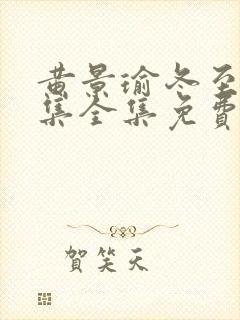 黄景瑜冬至
集全集免費
賀笑天